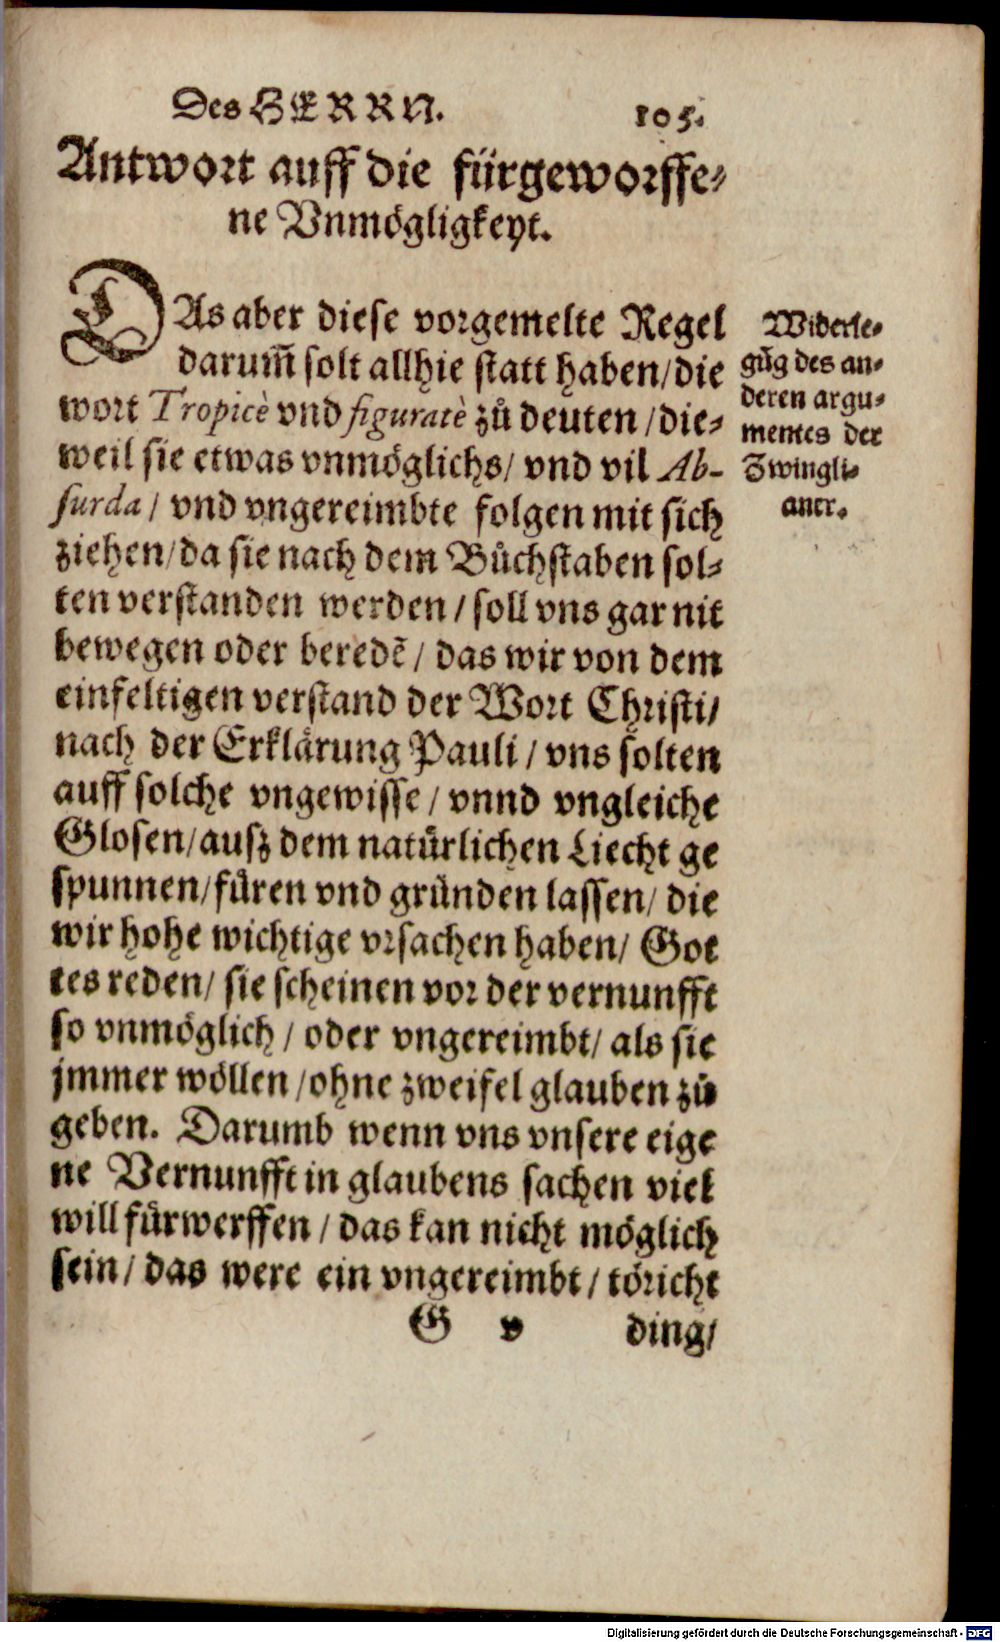 Des HERRN. 105.
Antwort auff die fürgeworffe-
ne Vnmögligkeyt.
DAs aber diese vorgemelte Regel
darum̃ solt allhie statt haben/die
wort Tropicè vnd figuratè zů deuten/die-
weil sie etwas vnmöglichs/ vnd vil Ab-
surda/ vnd vngereimbte folgen mit sich
ziehen/da sie nach dem Bůchstaben sol-
ten verstanden werden/soll vns gar nit
bewegen oder beredẽ/ das wir von dem
einfeltigen verstand der Wort Christi/
nach der Erklärung Pauli/ vns solten
auff solche vngewisse/ vnnd vngleiche
Glosen/ausz dem natürlichen Liecht ge
spunnen/füren vnd gründen lassen/ die
wir hohe wichtige vrsachen haben/ Got
tes reden/ sie scheinen vor der vernunfft
so vnmöglich/ oder vngereimbt/ als sie
jmmer wöllen/ohne zweifel glauben zů
geben. Darumb wenn vns vnsere eige
ne Vernunfft in glaubens sachen viel
will fürwerffen/ das kan nicht möglich
sein/ das were ein vngereimbt/ töricht
G v ding/
Widerle-
gũg des an-
deren argu-
mentes der
Zwingli-
aner.
Digitalisierung gefördert durch die Deutsche Forschungsgemeinschaft - DFG